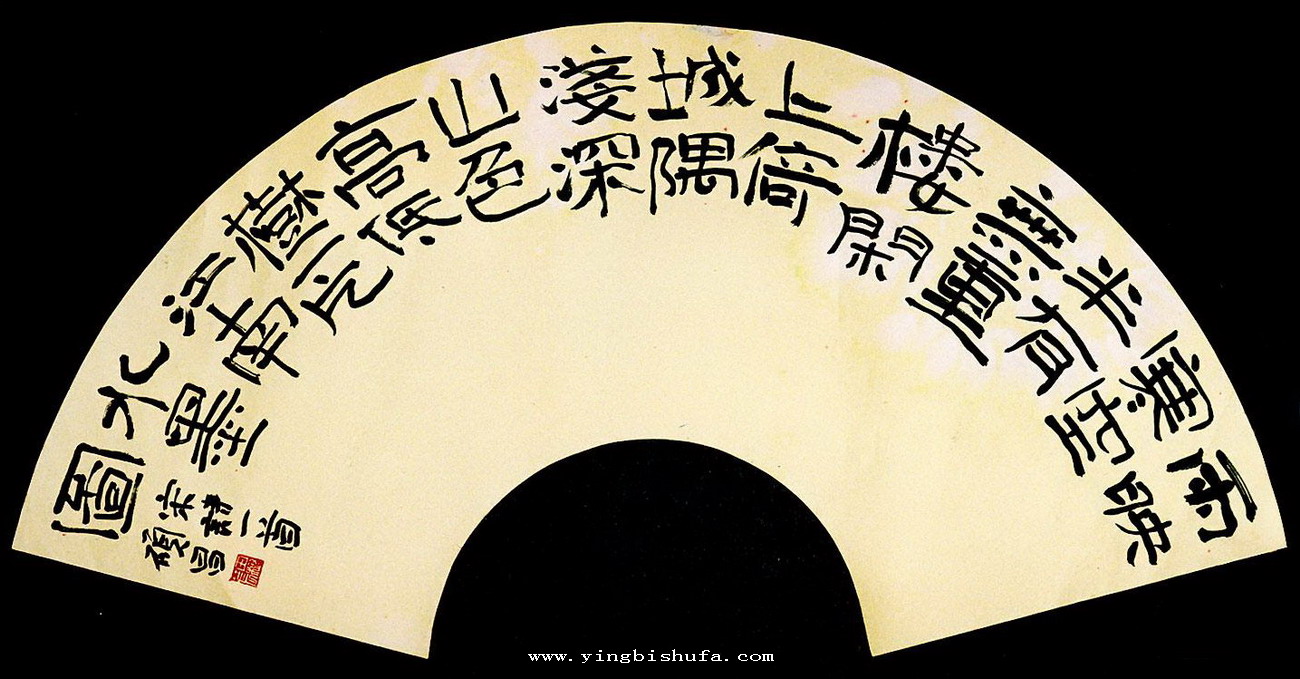 雨映
寒空
半有
無重
樓閑
上倚
城隅
淺深
山色
高低
樹一片
江南
水墨
圖
宋詩一首
www.yingbishufa.com